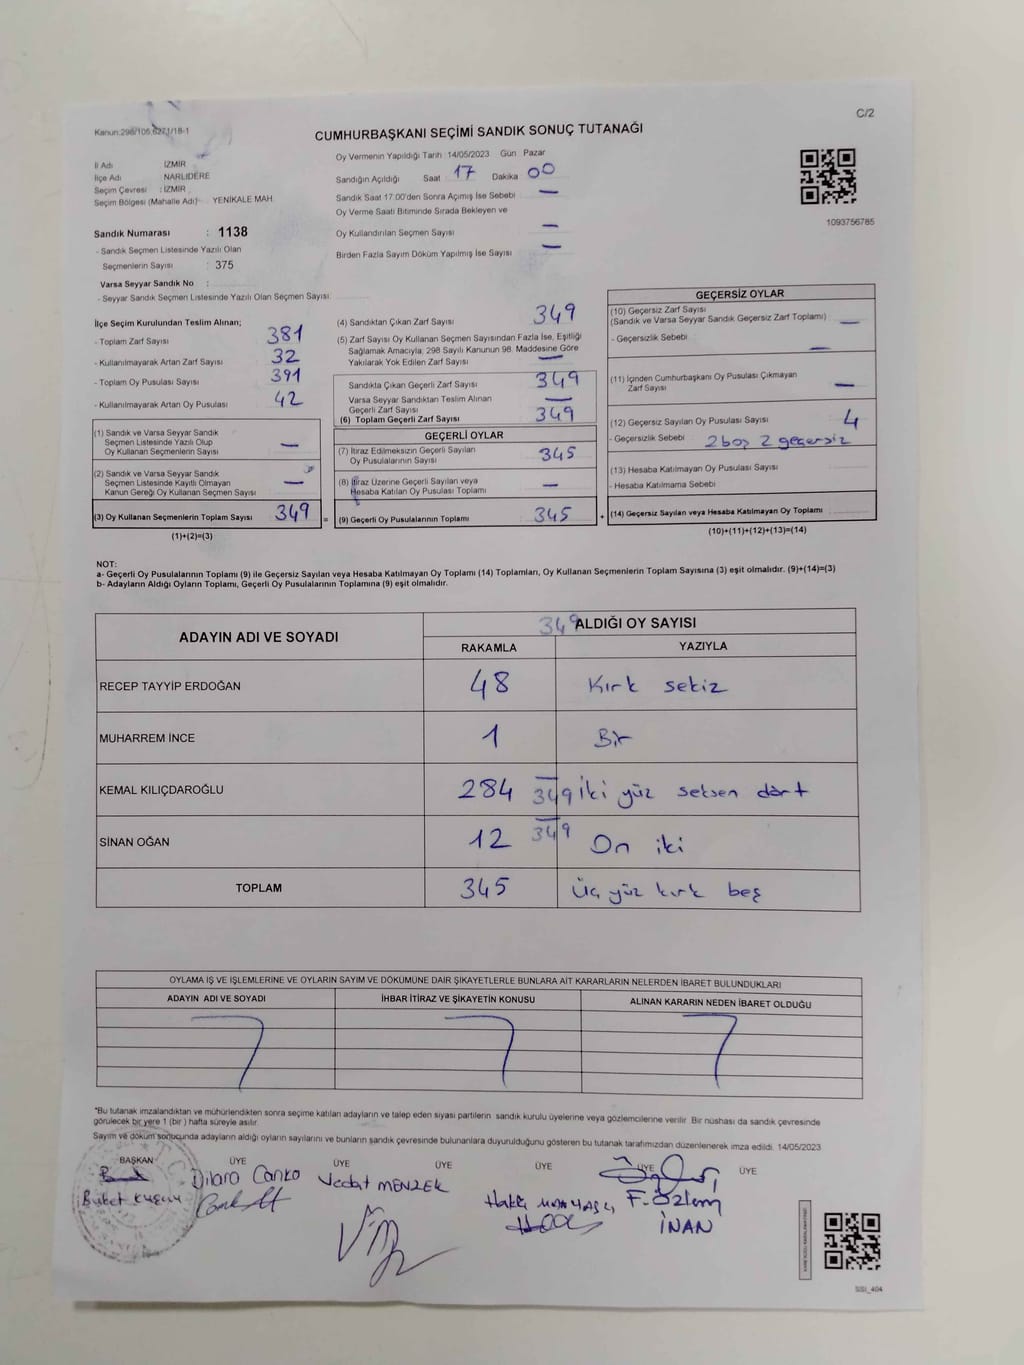 C/2
Kanun:298/105,6271/18-1
CUMHURBAŞKANI SEÇİMİ SANDIK SONUÇ TUTANAĞI
İl Adı İZMİR
İlçe Adı NARLIDERE
Seçim Çevresi : İZMİR
Seçim Bölgesi (Mahalle Adı) YENİKALE MAH.
Sandık Numarası : 1138
- Sandık Seçmen Listesinde Yazılı Olan
Seçmenlerin Sayısı : 375
Varsa Seyyar Sandık No :
- Seyyar Sandık Seçmen Listesinde Yazılı Olan Seçmen Sayısı:
Oy Vermenin Yapıldığı Tarih : 14/05/2023 Gün Pazar
Sandığın Açıldığı Saat 17 Dakika 00
Sandık Saat 17.00'den Sonra Açımış İse Sebebi —
Oy Verme Saati Bitiminde Sırada Bekleyen ve
Oy Kullandırılan Seçmen Sayısı —
Birden Fazla Sayım Döküm Yapılmış İse Sayısı —
1093756785
İlçe Seçim Kurulundan Teslim Alınan;
- Toplam Zarf Sayısı 381
- Kullanılmayarak Artan Zarf Sayısı 32
- Toplam Oy Pusulası Sayısı 391
- Kullanılmayarak Artan Oy Pusulası 42
(1) Sandık ve Varsa Seyyar Sandık
Seçmen Listesinde Yazılı Olup
Oy Kullanan Seçmenlerin Sayısı —
(2) Sandık ve Varsa Seyyar Sandık
Seçmen Listesinde Kayıtlı Olmayan
Kanun Gereği Oy Kullanan Seçmen Sayısı —
(3) Oy Kullanan Seçmenlerin Toplam Sayısı 349 =
(1)+(2)=(3)
(4) Sandıktan Çıkan Zarf Sayısı 349
(5) Zarf Sayısı Oy Kullanan Seçmen Sayısından Fazla İse, Eşitliği
Sağlamak Amacıyla, 298 Sayılı Kanunun 98. Maddesine Göre
Yakılarak Yok Edilen Zarf Sayısı —
Sandıkta Çıkan Geçerli Zarf Sayısı 349
Varsa Seyyar Sandıktan Teslim Alınan
Geçerli Zarf Sayısı —
(6) Toplam Geçerli Zarf Sayısı 349
GEÇERLİ OYLAR
(7) İtiraz Edilmeksizin Geçerli Sayılan
Oy Pusulalarının Sayısı 345
(8) İtiraz Üzerine Geçerli Sayılan veya
Hesaba Katılan Oy Pusulası Toplamı —
(9) Geçerli Oy Pusulalarının Toplamı 345 +
GEÇERSİZ OYLAR
(10) Geçersiz Zarf Sayısı
(Sandık ve Varsa Seyyar Sandık Geçersiz Zarf Toplamı) —
- Geçersizlik Sebebi —
(11) İçinden Cumhurbaşkanı Oy Pusulası Çıkmayan
Zarf Sayısı —
(12) Geçersiz Sayılan Oy Pusulası Sayısı 4
- Geçersizlik Sebebi 2 boş 2 geçersiz
(13) Hesaba Katılmayan Oy Pusulası Sayısı
- Hesaba Katılmama Sebebi
(14) Geçersiz Sayılan veya Hesaba Katılmayan Oy Toplamı
(10)+(11)+(12)+(13)=(14)
NOT:
a- Geçerli Oy Pusulalarının Toplamı (9) ile Geçersiz Sayılan veya Hesaba Katılmayan Oy Toplamı (14) Toplamları, Oy Kullanan Seçmenlerin Toplam Sayısına (3) eşit olmalıdır. (9)+(14)=(3)
b- Adayların Aldığı Oyların Toplamı, Geçerli Oy Pusulalarının Toplamına (9) eşit olmalıdır.
ADAYIN ADI VE SOYADI 349 ALDIĞI OY SAYISI
RAKAMLA YAZIYLA
RECEP TAYYİP ERDOĞAN 48 Kırk sekiz
MUHARREM İNCE 1 Bir
KEMAL KILIÇDAROĞLU 284 349 iki yüz seksen dört
SİNAN OĞAN 12 349 On iki
TOPLAM 345 Üç yüz kırk beş
OYLAMA İŞ VE İŞLEMLERİNE VE OYLARIN SAYIM VE DÖKÜMÜNE DAİR ŞİKAYETLERLE BUNLARA AİT KARARLARIN NELERDEN İBARET BULUNDUKLARI
ADAYIN ADI VE SOYADI İHBAR İTİRAZ VE ŞİKAYETİN KONUSU ALINAN KARARIN NEDEN İBARET OLDUĞU
"Bu tutanak imzalandıktan ve mühürlendikten sonra seçime katılan adayların ve talep eden siyasi partilerin sandık kurulu üyelerine veya gözlemcilerine verilir. Bir nüshası da sandık çevresinde
görülecek bir yere 1 (bir) hafta süreyle asılır.
Sayım ve döküm sonucunda adayların aldığı oyların sayılarını ve bunların sandık çevresinde bulunanlara duyurulduğunu gösteren bu tutanak tarafımızdan düzenlenerek imza edildi. 14/05/2023
BAŞKAN ÜYE ÜYE ÜYE ÜYE ÜYE ÜYE
Dilara Canko Vedat MENZEK
F. Özlem
İNAN
SSİ_404